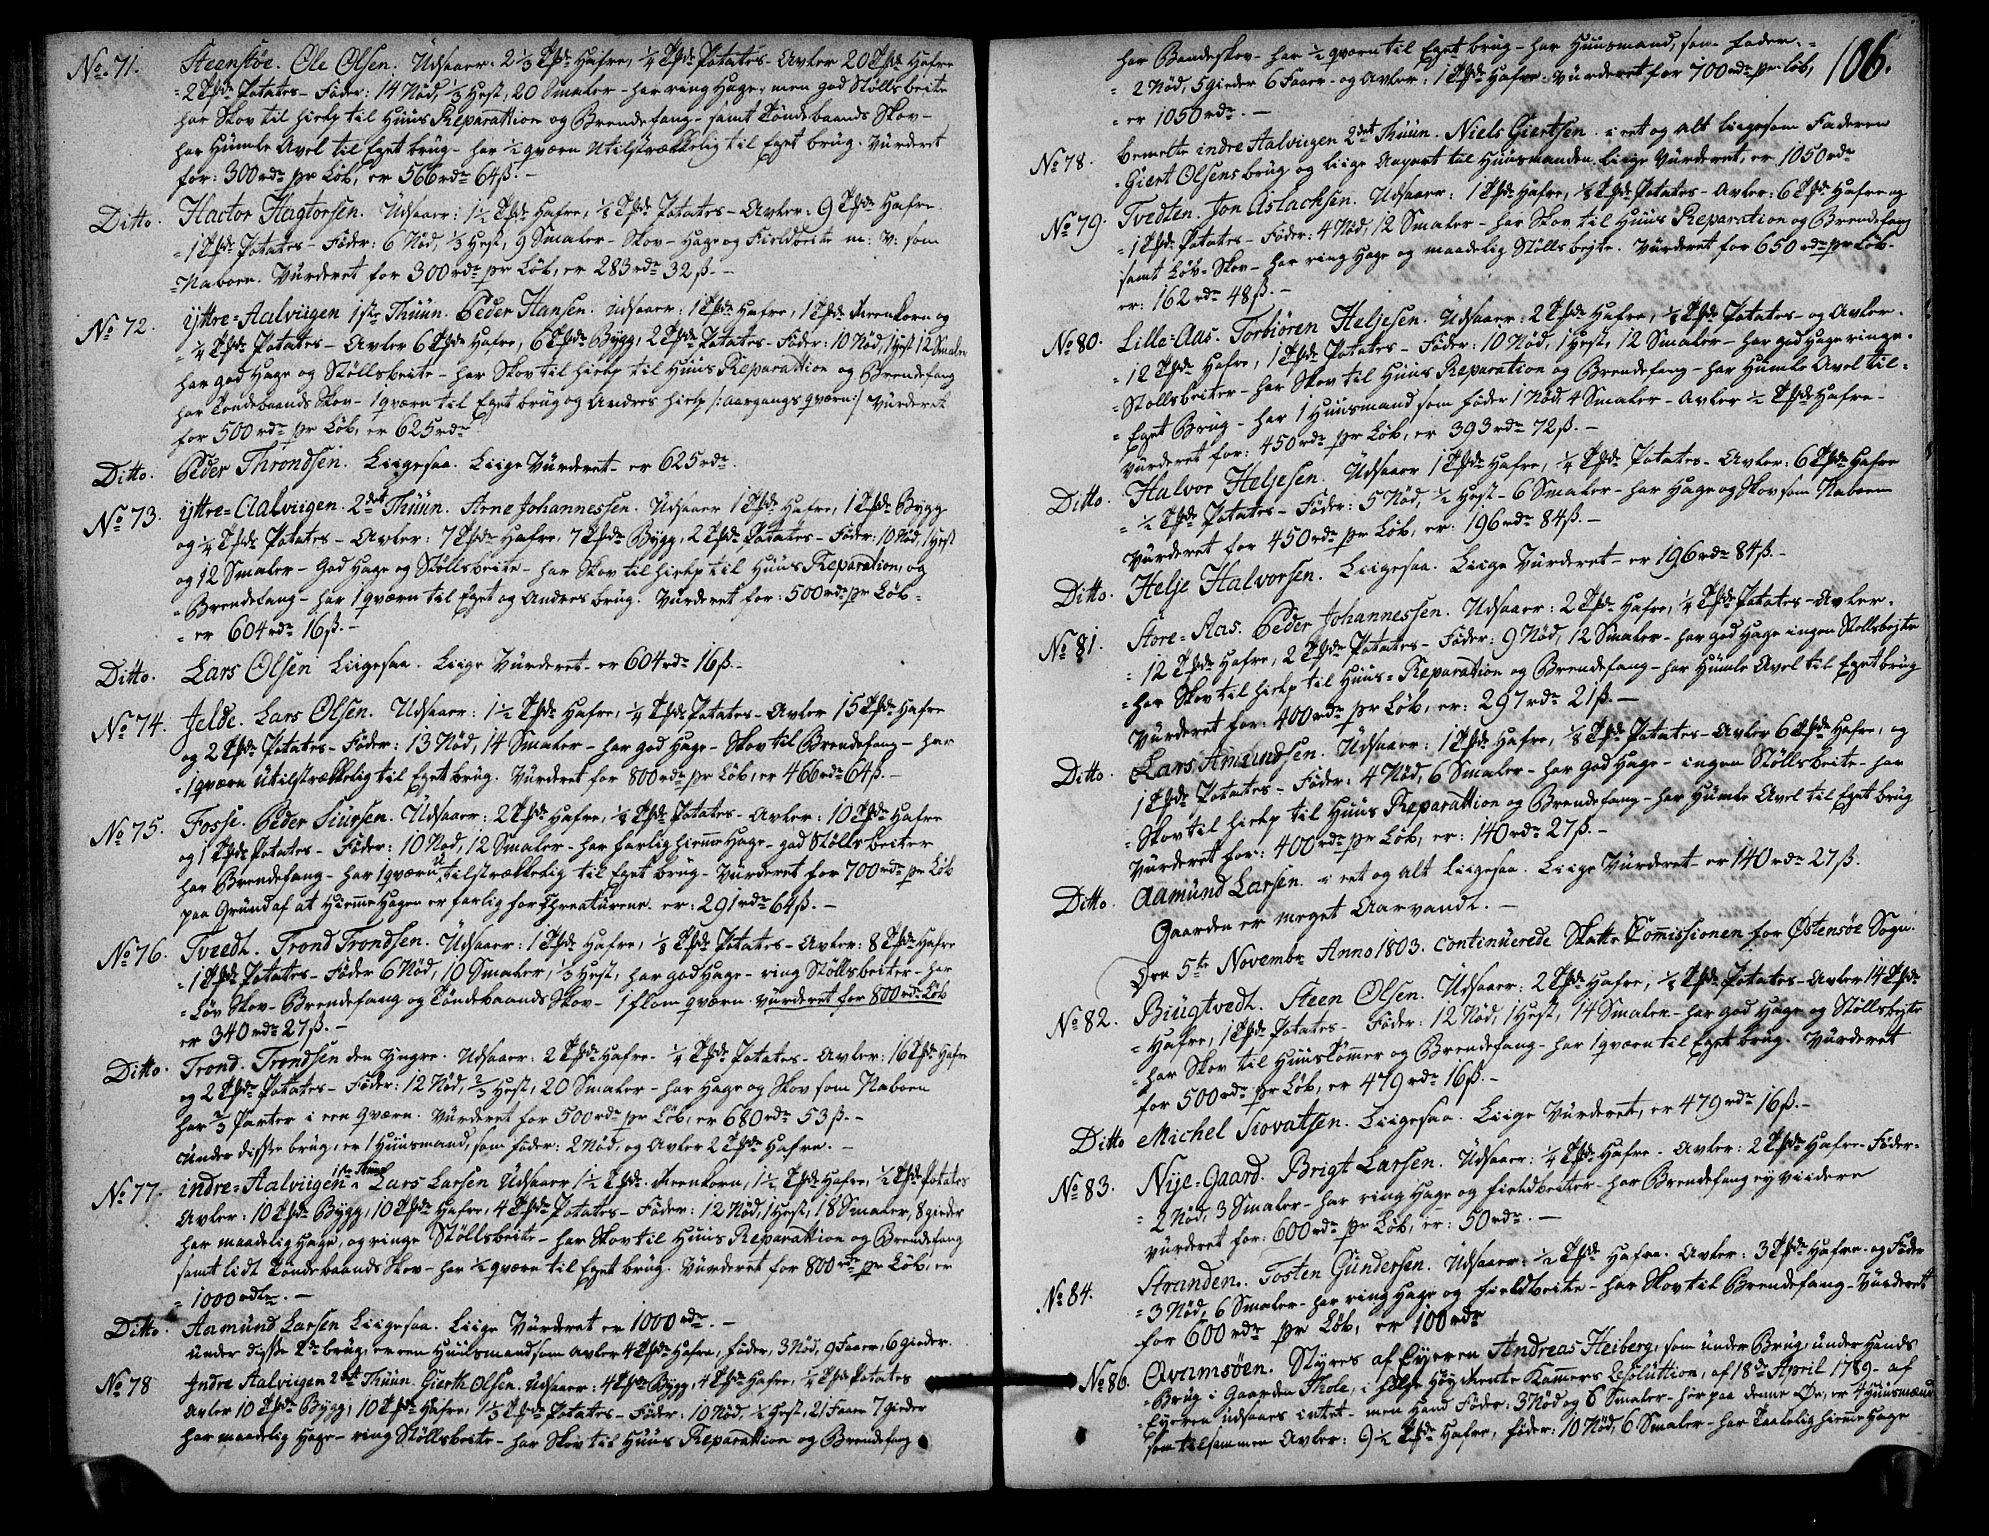 No. 71. Steenstøe. Ole Olsen. Udsaaer: 2 1/3 Tønde Hafre, 1/4 Tønde Potates - Avler 20 Tønde Hafre
2 Tønde Potates - Föder: 14 Nöd, 1/3 Hest, 20 Smaler - har ring Hage, men god Stöllsbeite
har Skov til hielp til Huus Reparattion og Brendefang - samt Töndebaands Skov -
har Humle Avel til Eget brug - har 1/2 qværn Utilstrækkelig til Eget brug. Vurderet
for: 300 rdr pr Löb, er 566 rdr 64 ß. -
Ditto. Hactor Hagtorsen. Udsaaer: 1 1/2 Tønde Hafre, 1/8 Tønde Potates - Avler: 9 Tønde Hafre
1 Tønde Potates - Föder: 6 Nöd, 1/3 Hest, 9 Smaler - Skov - Hage og Fieldbeite m: v: som
Naboen. Vurderet for 300 rdr pr Löb, er 283 rdr 32 ß. -
No. 72. Yttre=Aalviigen 1ste Thuun. Peder Hansen. Udsaaer: 1 Tønde Hafre, 1 Tønde Reenkorn og
1/4 Tønde Potates - Avler 6 Tønde Hafre, 6 Tønde Bygg, 2 Tønde Potates - Föder: 10 Nöd, 1 Hest 12 Smaler
har god Hage og Stöllsbeite - har Skov til hielp til Huus Reparattion og Brendefang
har Töndebaands Skov - 1 qværn til Eget brug og Andres hielp /: Aargangs qværn:/ Vurderet
for 500 rdr pr Löb, er 625 rdr
Ditto. Peder Throndsen. Liigesaa. Liige Vurderet - er 625 rdr.
No. 73. Yttre=Aalviigen. 2det Thuun. Arne Johannessen. Udsaaer 1 Tønde Hafre, 1 Tønde Bygg
og 1/4 Tønde Potates - Avler: 7 Tønde Hafre, 7 Tønde Bygg, 2 Tønde Potates - Föder: 10 Nöd, 1 Hest
og 12 Smaler - God Hage og Stöllsbeite - har Skov til hielp til Huus Reparation, og
Brendefang - har 1 qværn til Eget og Andres brug. Vurderet for: 500 rdr pr Löb -
er 604 rdr 16 ß. -
Ditto. Lars Olsen Liigesaa. Liige Vurderet - er 604 rdr 16 ß. -
No. 74. Jelde. Lars Olsen. Udsaaer: 1 1/2 Tønde Hafre, 1/4 Tønde Potates - Avler 15 Tønde Hafre
og 2 Tønde Potates - Föder: 13 Nöd, 14 Smaler - har god Hage - Skov til Brendefang - har
1 qværn Utilstrækkelig til Eget brug. Vurderet for 800 rdr pr Löb, er 466 rdr 64 ß. -
No. 75. Fosse. Peder Siursen. Udsaaer: 2 Tønde Hafre, 1/8 Tønde Potates - Avler: 10 Tønde Hafre
og 1 Tønde Potates - Föder: 10 Nöd, 12 Smaler - har farlig hieme Hage - god Stöllsbeiter
har Brendefang - har 1 qværn utilstrækkelig til Eget brug - Vurderet for 700 rdr pr Löb
paa Grund af at Hieme Hagen er farlig for Chreaturene. er: 291 rdr 64 ß. -
No. 76. Tvedt. Trond Trondsen. Udsaaer: 1 Tønde Hafre, 1/8 Tønde Potates - Avler: 8 Tønde Hafre
1 Tønde Potates - Föder 6 Nöd, 10 Smaler, 1/3 Hest, har god Hage - ring Stöllsbeiter - har
Löv Skov - Brendefang og Töndebaands Skov - 1 flom qværn. Vurderet for 800 rdr Löb
er 340 rdr 27 ß. -
Ditto. Trond. Trondsen den Yngre. Udsaaer: 2 Tønde Hafre - 1/4 Tønde Potates - Avler: 16 Tønde Hafre
og 2 Tønde Potates - Föder: 12 Nöd, 2/3 Hest, 20 Smaler - har Hage og Skov som Naboen
har 2/3 Parter i een qværn. Vurderet for 500 rdr pr Löb, er 680 rdr 53 ß. -
Under disse brug, er 1 Huusmand, som föder: 2 Nöd, og Avler 2 Tønde Hafre. -
No. 77. indre=Aalviigen 1ste Thuun Lars Larsen Udsaaer 1 1/2 Tønde Reenkorn, 1 1/2 Tønde Hafre, 1/2 Tønde Potates
Avler: 10 Tønde Bygg, 10 Tønde Hafre, 4 Tønde Potates - Föder: 12 Nöd, 1 Hest, 18 Smaler, 8 gieder
har maadelig Hage, og ringe Stöllsbeite - har Skov til Huus Reparattion og Brendefang
samt lidt Töndebaands Skov - har 1/2 qværn til Eget brug. Vurderet for 800 rdr pr Löb, er
1000 rdlr. -
Ditto. Aamund Larsen Liigesaa. Liige Vurderet er 1000 rdr. -
Under disse 2de brug, er een Huusmand som Avler 4 Tønde Hafre, föder, 3 Nöd, 9 Faaer, 6 gieder.
No. 78 Indre Aalviigen 2det Thuun. Gierth Olsen. Udsaaer: 4 Tønde Bygg, 4 Tønde Hafre, 1/4 Tønde Potates
Avler 10 Tønde Bygg, 10 Tønde Hafre, 1 1/3 Tønde Potates - Föder: 10 Nöd, 1/2 Hest, 21 Faaer 7 gieder
har maadelig Hage - ring Stöllsbeite - har Skov til Huus Reparattion og Brendefang
106.
har Baandeskov - har 1/2 qværn til Eget brug - har Huusmand, som föder:
2 Nöd, 5 gieder 6 Faaer - og Avler: 1 Tønde Hafre. Vurderet for 700 rdr pr Löb,
er 1050 rdr. -
No 78. bemelte indre Aalviigen 2det Thuun. Niels Giertsen. i eet og Alt liigesom Faderen
Giert Olsens brug og liige Anpart til Huusmanden. Liige Vurderet, er 1050 rdr
No 79. Tvedten. Jon Aslachsen. Udsaaer: 1 Tønde Hafre, 1/8 Tønde Potates - Avler: 6 Tønde Hafre og
1 Tønde Potates - Föder: 4 Nöd, 12 Smaler - har Skov til Huus Reparation og Brendefang
samt Löv-Skov - har ring Hage og maadelig Stöllsbejte. Vurderet for 650 rdr pr Löb -
er: 162 rdr 48 ß. -
No 80. Lille=Aas. Torbiören Heljesen. Udsaaer: 2 Tønde Hafre, 1/8 Tønde Potates - og Avler.
12 Tønde Hafre, 1 Tønde Potates - Föder: 10 Nöd, 1 Hest, 12 Smaler - har god Hage ringe
Stöllsbeiter - har Skov til Huus Reparation og Brendefang - har Humle Avel til
Eget Brug - har 1 Huusmand som föder 1 Nöd, 4 Smaler - Avler 1/2 Tønde Hafre -
Vurderet for: 450 rdr pr Löb, er 393 rdr 72 ß. -
Ditto. Halvor Heljesen. Udsaaer 1 Tønde Hafre, 1/4 Tønde Potates - Avler: 6 Tønde Hafre
1/2 Tønde Potates - Föder: 5 Nöd, 1/2 Hest - 6 Smaler - har Hage og Skov som Naboen
Vurderet for 450 rdr pr Löb, er: 196 rdr 84 ß. -
Ditto. Helje Halvorsen. Liigesaa. Liige Vurderet - er 196 rdr 84 ß. -
No 81. Store=Aas. Peder Johannessen. Udsaaer: 2 Tønde Hafre, 1/4 Tønde Potates - Avler.
12 Tønde Hafre, 2 Tønde Potates - Föder: 9 Nöd, 12 Smaler - har god Hage ingen Stöllsbejte
Har Skov til hielp til Huus=Reparattion og Brendefang - har Humle Avel til Eget brug
Vurderet for: 400 rdr pr Löb, er: 297 rdr 21 ß. -
Ditto. Lars Amundsen. Udsaaer: 1 Tønde Hafre, 1/8 Tønde Potates - Avler 6 Tønde Hafre, og
1 Tønde Potates - Föder: 4 Nöd, 6 Smaler - har god Hage - ingen Stöllsbeite - har
Skov til hielp til Huus Reparattion og Brendefang - har Humle Avel til Eget brug
Vurderet for: 400 rdr pr Löb, er: 140 rdr 27 ß. -
Ditto. Aamund Larsen. i eet og Alt liigesaa. Liige Vurderet er 140 rdr 27 ß.
Gaarden er meget Aarvandt. -
Den 5te Novembr Anno 1803. Continuerede Skatte Comissionen for Østensöe Sogn.
No 82. Biugtvedt. Steen Olsen. Udsaaer: 2 Tønde Hafre, 1/8 Tønde Potates - Avler 14 Tønde
Hafre, 1 Tønde Potates - Föder: 12 Nöd, 1 Hest, 14 Smaler - har god Hage og Stöllsbejte
har Skov til Huustömer og Brendefang - har 1 qværn til Eget brug. Vurderet
for 500 rdr pr Löb, er 479 rdr 16 ß. -
Ditto Michel Siovatsen. Liigesaa. Liige Vurderet, er 479 rdr 16 ß. -
No 83. Nije=Gaard. Brigt Larsen. Udsaaer: 1/4 Tønde Hafre - Avler: 2 Tønde Hafre - Föder:
2 Nöd, 3 Smaler - har ring Hage og fieldbeiter - har Brendefang ey viidere
Vurderet for: 600 rdr pr Löb, er: 50 rdr. -
No 84. Stranden. Tosten Gundersen. Udsaaer: 1/2 Tønde Hafre. Avler: 3 Tønde Hafre. og Föder
3 Nöd, 6 Smaler - har ring Hage og fieldbeite - har Skov til Brendefang - Vurderet
for 600 rdr pr Löb, er 100 rdr
No 86. Qvamsöen. Styres af Eyeren Andreas Heiberg, som under Brug, under Hands
Brug i Gaarden Thole, i fölge höy Rente Kamers Resoluttion, af 18de April 1789 - af
Eyeren Udsaaes intet - men Hand Föder: 3 Nöd og 6 Smaler - her paa denne Øe, er 4 Huusmænd
som tilsammen Avler: 9 1/2 Tønde Hafre, föder: 10 Nöd, 6 Smaler - har Taalelig hieme Hage